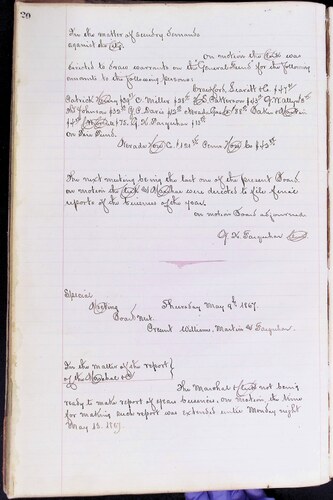 20
In the matter of sundry demands
against the City.
On motion the Clerk was
directed to draw warrants on the General Fund for the following
amounts to the following persons:
Crawford, Leavitt & Co $47
Patrick O. Miller $20 Patterson $43
Johnson $30 Davis $10
Farquhar
on Fire Fund.
Nevada Hose Co $150 Penna Hose Co $43
The next meeting being the last one of the present Board
on motion the Clerk & Marshal were directed to file final
reports of the business of the year.
On motion Board adjourned
G. K. Farquhar Clerk
Special
Meeting Thursday May 9th 1867.
Board Met.
Present Williams, Martin & Farquhar.
In the matter of the report
of the Marshal &
The Marshal & Clerk not being
ready to make report of years business, on motion, the time
for making such report was extended until Monday night
May 13. 1867.